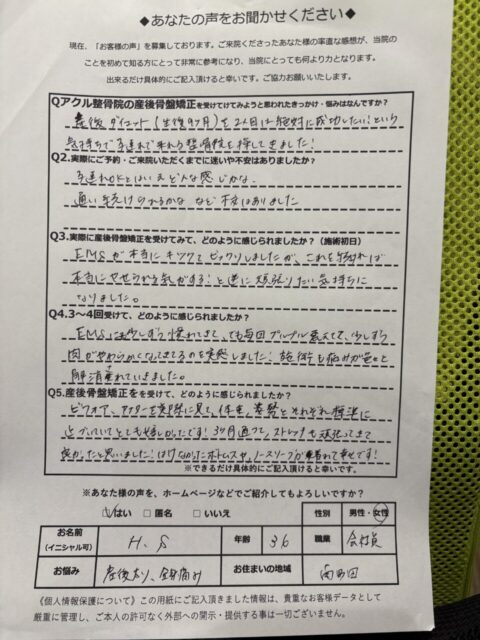 ◆あなたの声をお聞かせください◆
現在、「お客様の声」を募集しております。ご来院くださったあなた様の率直な感想が、当院の
ことを初めて知る方にとって非常に参考になり、当院にとっても何より力となります。
出来るだけ具体的にご記入頂けると幸いです。ご協力お願いします。
Qアクル整骨院の産後骨盤矯正を受けてけてみようと思われたきっかけ・悩みはなんですか?
産後ダイエット(生後9ヶ月)を2人目は絶対に成功したい!という
気持ちで子連れで来れる整骨院を探してきました!
Q2.実際にご予約・ご来院いただくまでに迷いや不安はありましたか?
子連れOKとはいえどんな感じかな、
通い続けられるかな など不安はありました
Q3.実際に産後骨盤矯正を受けてみて、どのように感じられましたか?(施術初日)
EMSが本当にキツくてビックリしましたが、これを続ければ
本当にやせられる気がする!と逆に頑張りたい気持ちに
なりました。
Q4.3〜4回受けて、どのように感じましたか?
EMSにも少しずつ慣れてきて、でも毎回プルプル震えてて、少しずつ
肉がやわらかくなってきてるのを実感しました!施術も痛みが竜と
解消されていきました。
Q5.産後骨盤矯正ををを受けて、どのように感じられましたか?
ビフォア、アフターを実際に見て、体重、姿勢とそれぞれ標準に
近づいていてとても嬉しかったです!3ヶ月通って、ストレッチも頑張ってきて
良かったと思いました!はけなかったボトムスや、ノースリーブが着れて幸せです!
※できるだけ具体的にご記入頂けると幸いです。
※あなた様の声を、ホームページなどでご紹介してもよろしいですか?
☑はい □匿名 □いいえ
性別 男性・女性
お名前 (イニシャル可) H.S 年齢 36 職業 会社員
お悩み 産後太り、全身痛み お住まいの地域 南吉田
《個人情報保護について》この用紙にご記入頂きました情報は、貴重なお客様データとして
厳重に管理し、ご本人の許可なく外部への開示・提供する事は一切ございません。